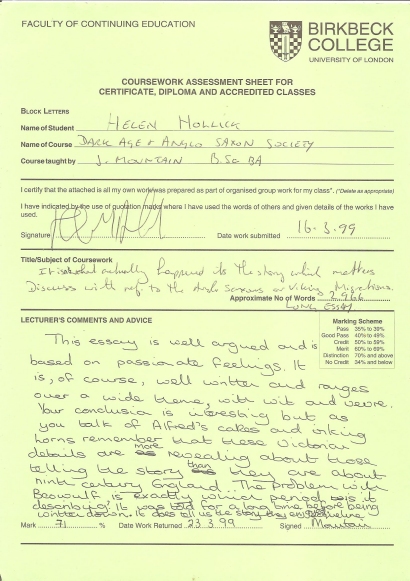 FACULTY OF CONTINUING EDUCATION
BIRKBECK
COLLEGE
UNIVERSITY OF LONDON
COURSEWORK ASSESSMENT SHEET FOR
CERTIFICATE, DIPLOMA AND ACCREDITED CLASSES
BLOCK LETTERS
Name of Student HELEN HOLLICK
Name of Course DARK AGE & ANGLO SAXON SOCIETY
Course taught by J. MOUNTAIN B.Sc BA
I certify that the attached is all my own work/was prepared as part of organised group work for my class*. (*Delete as appropriate)
I have indicated by the use of quotation marks where I have used the words of others and given details of the works I have
used.
Signature Date work submitted 16-3-99
Title/Subject of Coursework
It is not what actually happened its the story which matters
Discuss with ref. to the Anglo Saxons or Viking Migrations.
Approximate No of Words 2,966
LONG ESSAY
LECTURER'S COMMENTS AND ADVICE
Marking Scheme
Pass 35% to 39%
Good Pass 40% to 49%
Credit 50% to 59%
Merit 60% to 69%
Distinction 70% and above
No Credit 34% and below
This essay is well argued and is
based on passionate feelings. It
is, of course, well written and ranges
over a wide theme, with wit and verve.
Your conclusion is interesting but as
you talk of Alfred's cakes and viking
horns remember that these Victorian
details are more revealing about those
telling the story than they are about
ninth century England. The problem with
Beowulf is exactly which period is it
describing? It was told for a long time before being
written down. It does tell us the story they
Mark 71 % Date Work Returned 23.3.99 Signed Mountain